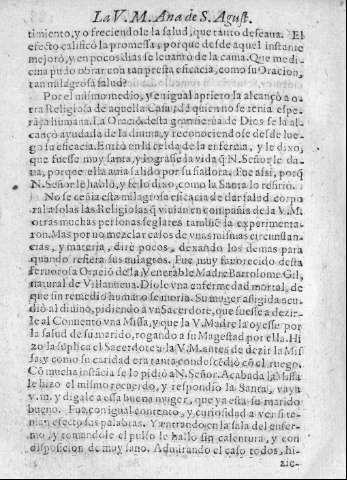 La V. M. Ana de S. Agust.
timiento, y ofreciendole la salud, que tanto deseaua. El
efecto calificò la promessa, porque desde aquel instante
mejorò, y en pocos dias se leuantò de la cama. Que medi-
cina pudo obrar con tan presta eficacia, como su Oracion,
tan milagrosa salud?
Por el mismo medio, y en igual aprieto la alcançò a o-
tra Religiosa de aquella Casa, de quien no se tenia espe-
rança humana. La Oracion desta gran sierua de Dios se la al-
cançò ayudada de la diuina, y reconociendose desde lue-
go su eficacia. Entrò en la celda de la enferma, y le dixo,
que fuesse muy santa, y lograsse la vida q̃ N. Señor le da-
ua, porque ella auia salido por su fiadora. Fue assi, porq̃
N. Señor le hablò, y se lo dixo, como la Santa lo refirió.
No se ceñia esta milagrosa eficacia de dar salud corpo-
ral a solas las Religiosas q̃ viuian en compañia de la V. M.
otras muchas personas seglares tambiẽ la experimenta-
ron. Mas por no mezclar casos de vnas mismas circunstan-
cias, y materia, dirè pocos, dexando los demas para
quando refiera sus milagros. Fue muy fauorecido desta
feruorosa Oraciõ de la Venerable Madre Bartolome Gil,
natural de Villanueua. Diole vna enfermedad mortal, de
que sin remedio humano se moria. Su muger afligida acu-
diò al diuino, pidiendo à vn Sacerdote, que fuesse a dezir-
le al Conuento vna Missa, y que la V. Madre la oyesse por
la salud de su marido, rogando a su Magestad por ella. Hi-
zo la suplica el Sacerdote a la V. M. antes de dezir la Mis-
sa, y como su caridad era tanta, condescẽdiò cõ el ruego.
Cõ mucha instãcia se lo pidiò a N. Señor. Acabada la Missa
le hizo el mismo recuerdo, y respondiò la Santa, vaya
v. m. y digale a essa buena muger, que ya està su marido
bueno. Fue, con igual contento, y curiosidad a ver si te-
nian efecto sus palabras. Y entrando en la sala del enfer-
mo, y tomandole el pulso le hallò sin calentura, y con
disposicion de muy sano. Admirando el caso todos, hi-
zie-